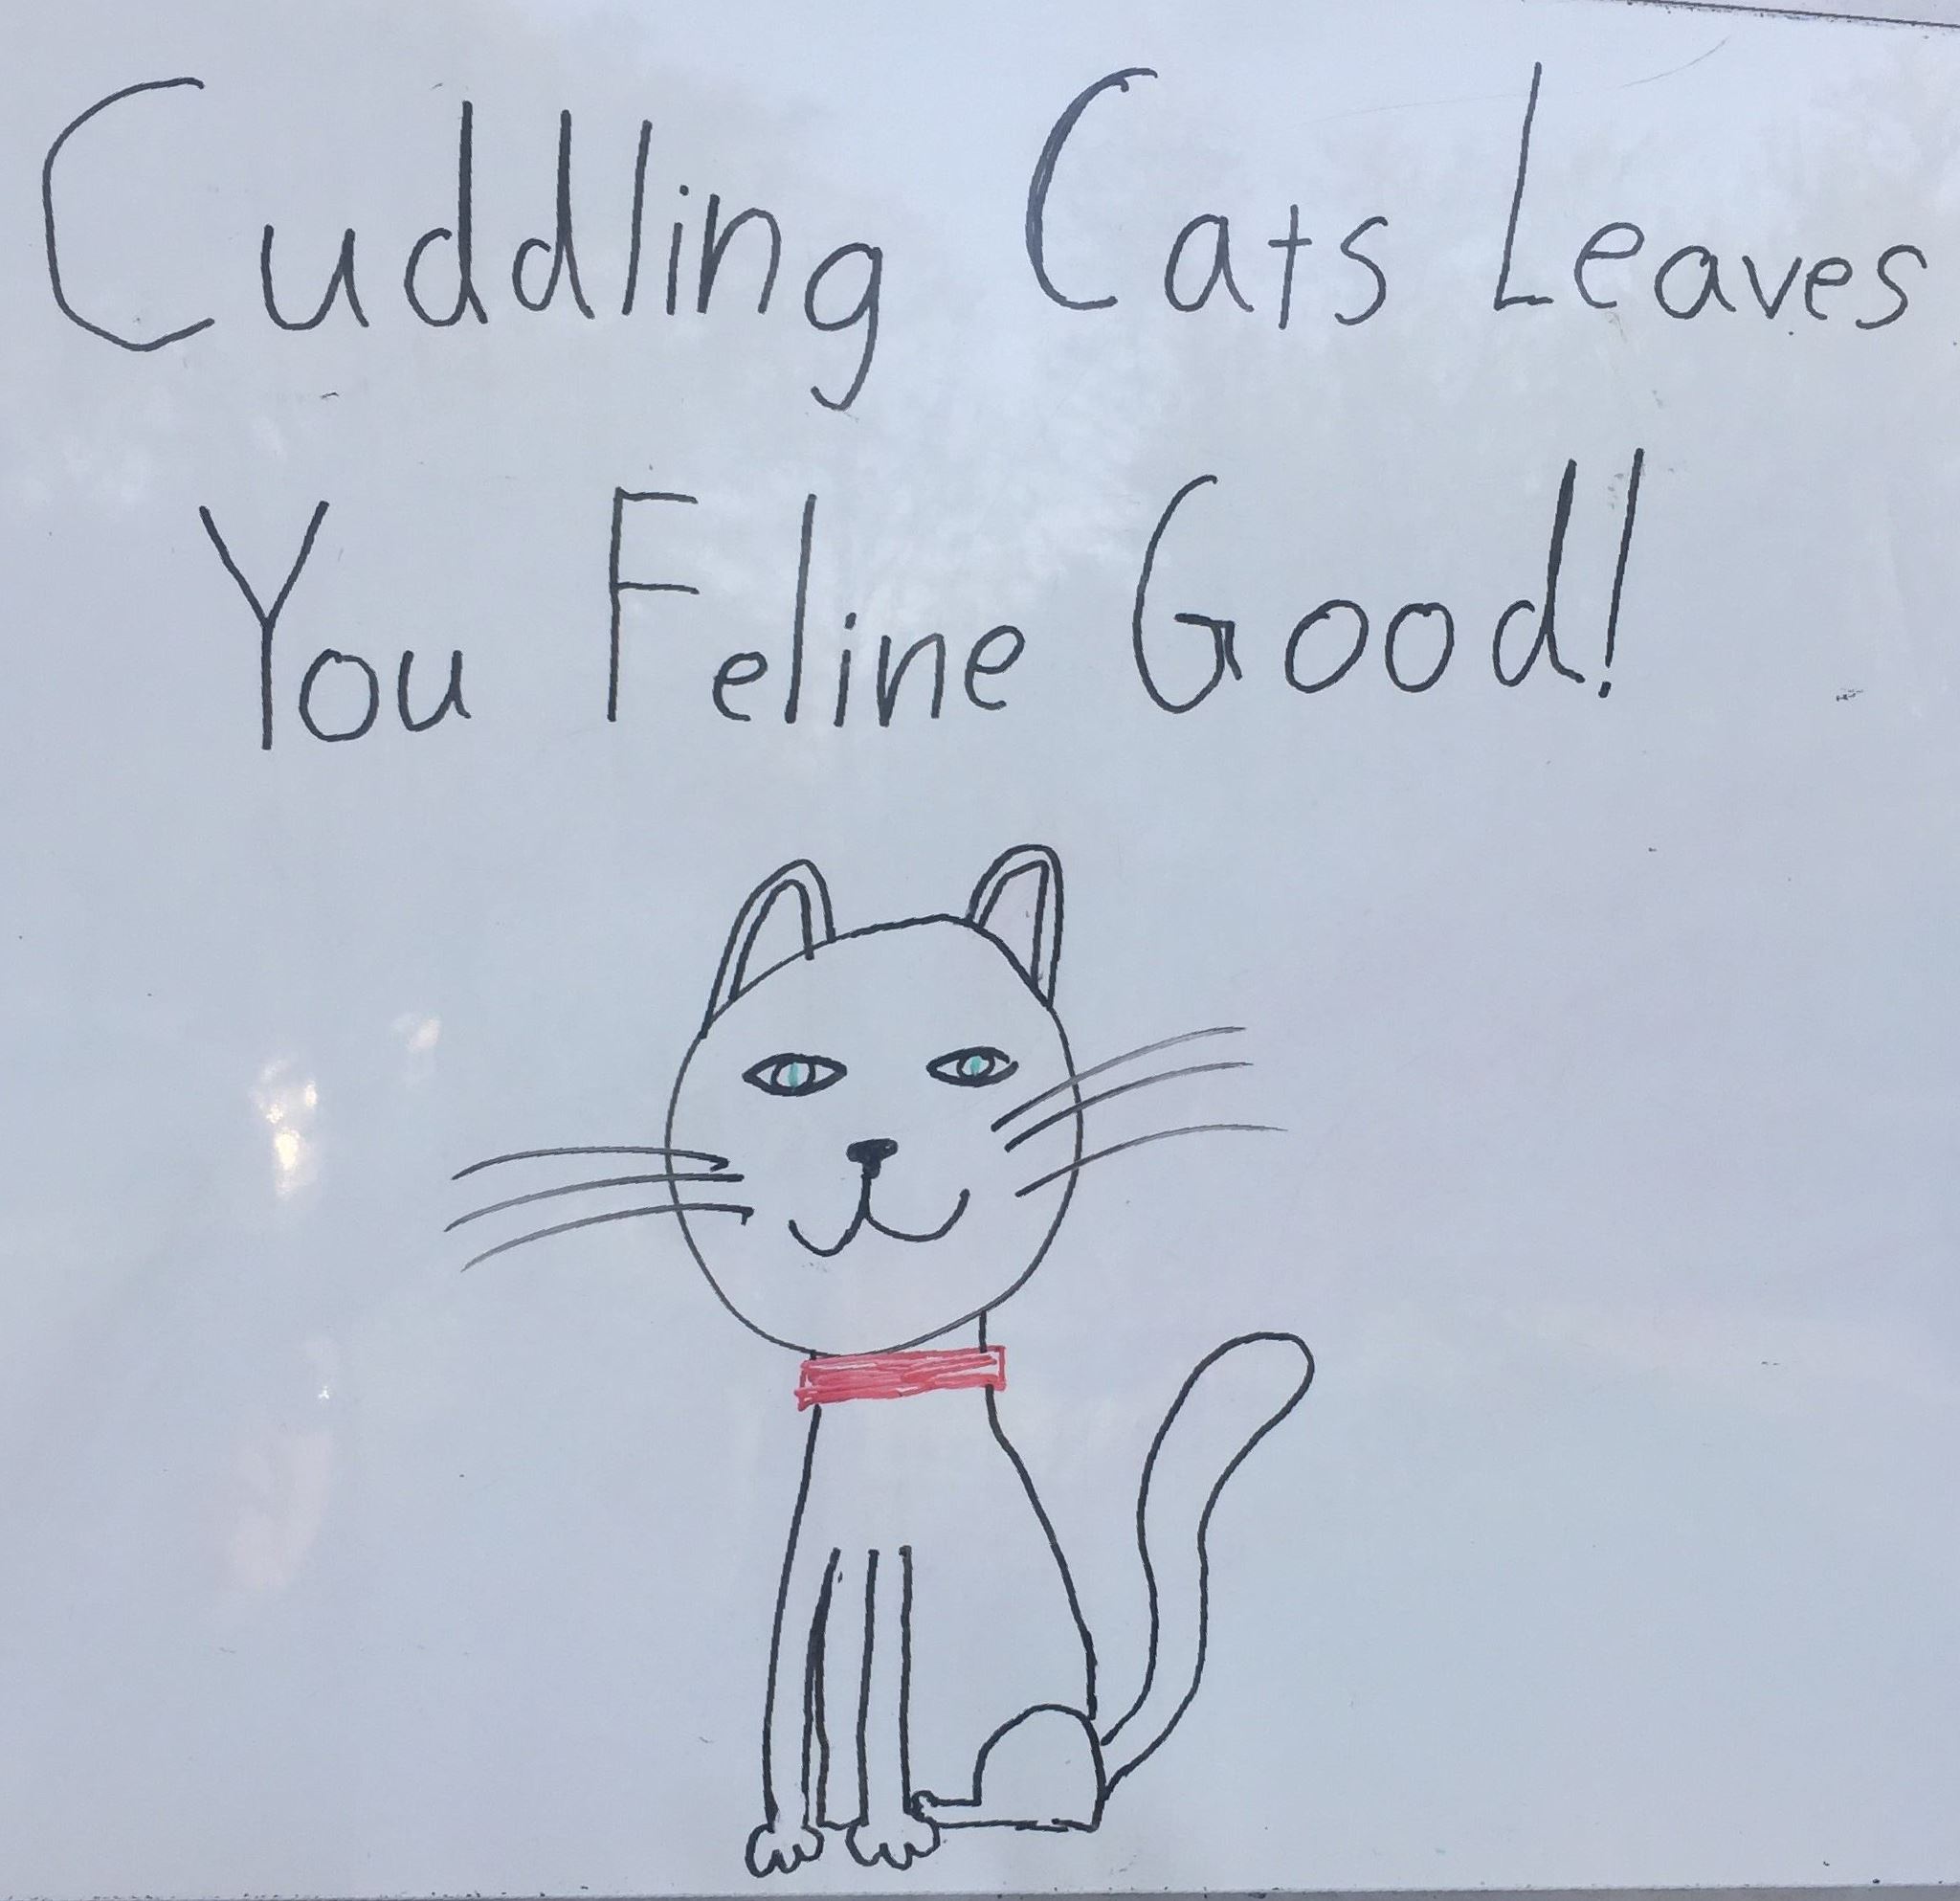 Cuddling Cats Leaves
You Feline Good!